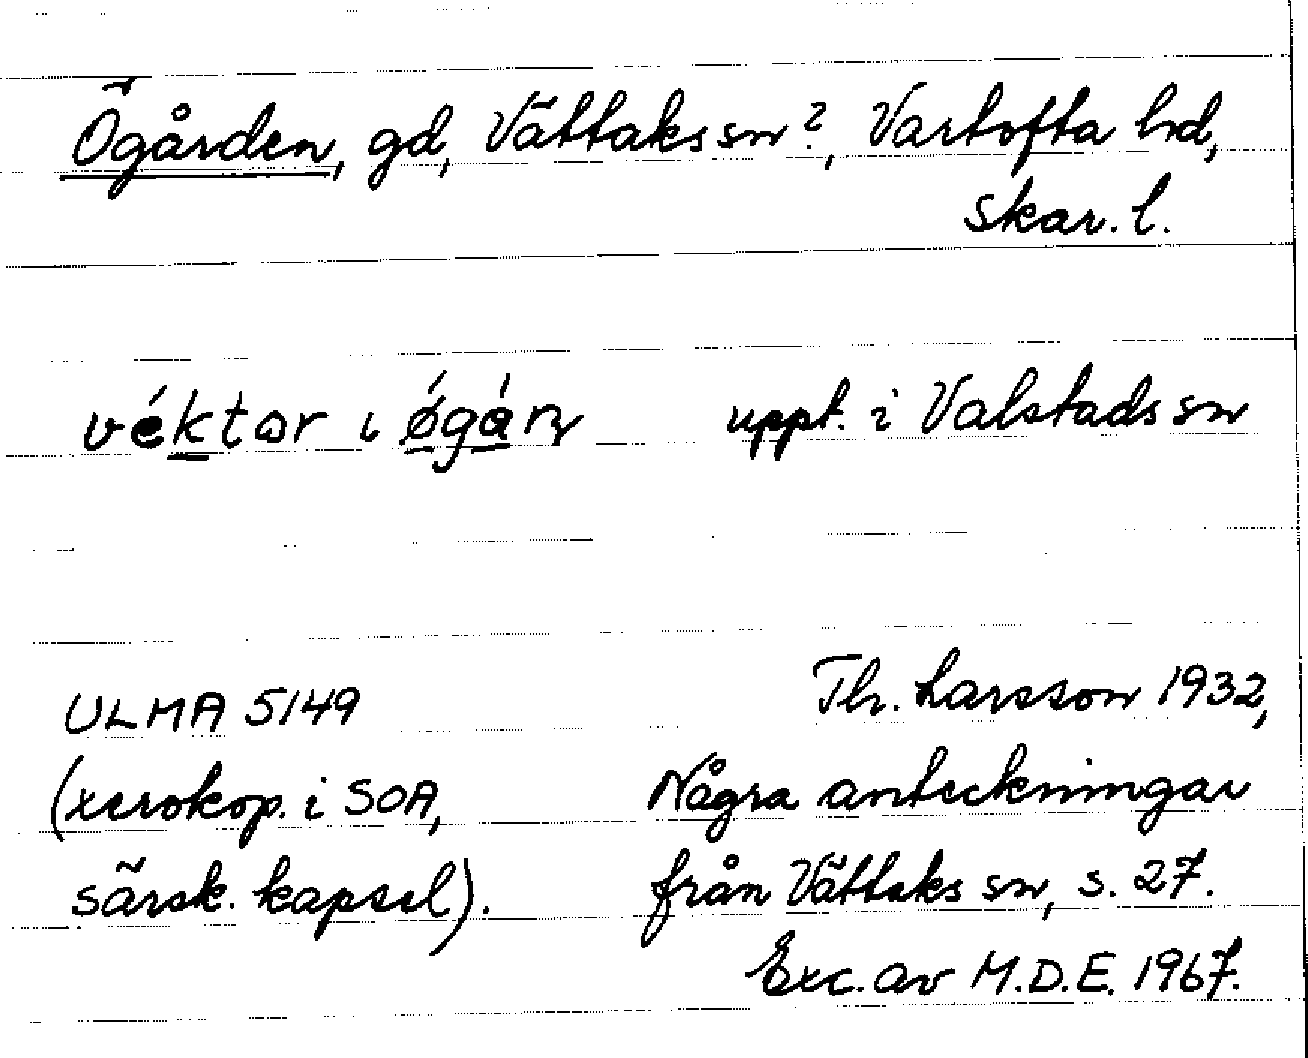 Ögården, gd, Vättaks sn?, Vartofta hd,
Skar. l.
véktor i øgán uppt. i Valstads sn
ULMA 5149 Th. Larsson 1932,
(xerokop. i SOA, Några anteckningar
särsk. kapsel). från Vättaks sn, s. 27.
Exc. av M.D.E. 1967.